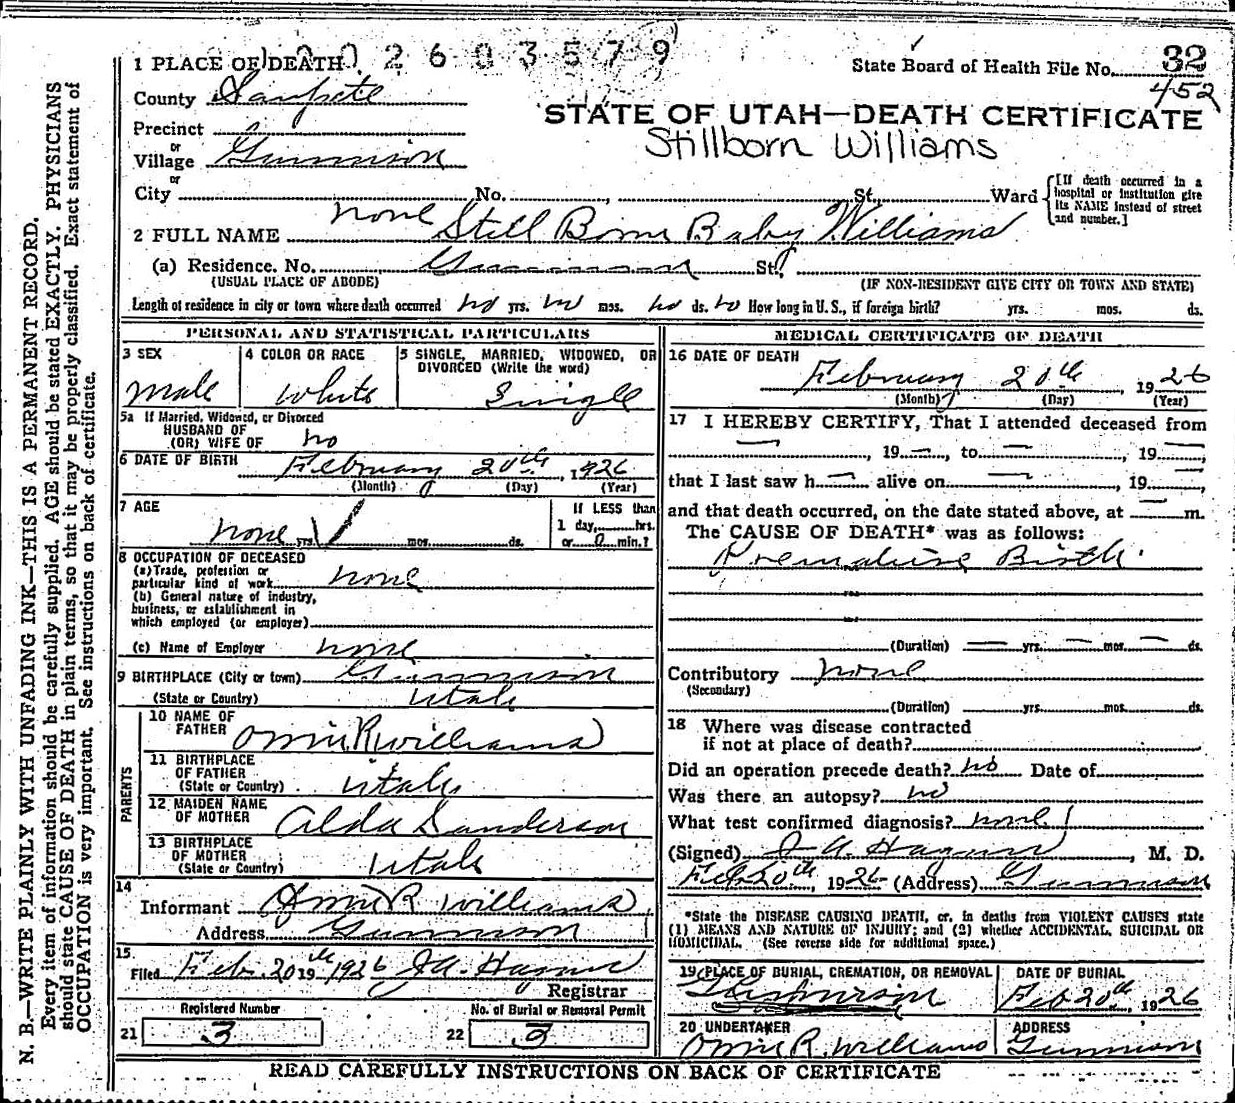 2603579
1 PLACE OF DEATH
State Board of Health File No. 32
452
County Sanpete
STATE OF UTAH—DEATH CERTIFICATE
Precinct
or
Stillborn Williams
Village Gunnison
or
City No. , St., Ward
[If death occurred in a hospital or institution give its NAME instead of street and number.]
none
2 FULL NAME Still Born Baby Williams
(a) Residence. No. Gunnison St.,
(USUAL PLACE OF ABODE) (IF NON-RESIDENT GIVE CITY OR TOWN AND STATE)
Length of residence in city or town where death occurred no yrs. no mos. no ds. no How long in U. S., if foreign birth? yrs. mos. ds.
PERSONAL AND STATISTICAL PARTICULARS
3 SEX
Male
4 COLOR OR RACE
White
5 SINGLE, MARRIED, WIDOWED, OR
DIVORCED (Write the word)
Single
5a If Married, Widowed, or Divorced
HUSBAND OF
(OR) WIFE OF no
6 DATE OF BIRTH February 20th, 1926
(Month) (Day) (Year)
7 AGE
none yrs. mos. ds.
If LESS than
1 day, hrs.
or 0 min.?
8 OCCUPATION OF DECEASED
(a) Trade, profession or
particular kind of work none
(b) General nature of industry,
business, or establishment in
which employed (or employer)
(c) Name of Employer none
9 BIRTHPLACE (City or town) Gunnison
(State or Country) Utah
PARENTS
10 NAME OF
FATHER R Williams
11 BIRTHPLACE
OF FATHER
(State or Country) Utah
12 MAIDEN NAME
OF MOTHER Alda Sanderson
13 BIRTHPLACE
OF MOTHER
(State or Country) Utah
14
Informant R Williams
Address Gunnison
15
Filed Feb. 20th 19 1926 J A Hagan
Registrar
Registered Number No. of Burial or Removal Permit
21 3 22 3
MEDICAL CERTIFICATE OF DEATH
16 DATE OF DEATH
February 20th, 1926
(Month) (Day) (Year)
17 I HEREBY CERTIFY, That I attended deceased from
—, 19—, to —, 19—,
that I last saw h— alive on —, 19—,
and that death occurred, on the date stated above, at — m.
The CAUSE OF DEATH* was as follows:
Premature Birth
(Duration) — yrs. — mos. — ds.
Contributory none
(Secondary)
(Duration) yrs. mos. ds.
18 Where was disease contracted
if not at place of death?
Did an operation precede death? no Date of
Was there an autopsy? no
What test confirmed diagnosis? none
(Signed) J A Hagan, M. D.
Feb 20th, 1926 (Address) Gunnison
*State the DISEASE CAUSING DEATH, or, in deaths from VIOLENT CAUSES state
(1) MEANS AND NATURE OF INJURY; and (2) whether ACCIDENTAL, SUICIDAL OR
HOMICIDAL. (See reverse side for additional space.)
19 PLACE OF BURIAL, CREMATION, OR REMOVAL
Gunnison
DATE OF BURIAL
Feb 20th, 1926
20 UNDERTAKER
R. Williams
ADDRESS
Gunnison
READ CAREFULLY INSTRUCTIONS ON BACK OF CERTIFICATE
N. B.—WRITE PLAINLY WITH UNFADING INK—THIS IS A PERMANENT RECORD.
Every item of information should be carefully supplied. AGE should be stated EXACTLY. PHYSICIANS
should state CAUSE OF DEATH in plain terms, so that it may be properly classified. Exact statement of
OCCUPATION is very important. See instructions on back of certificate.